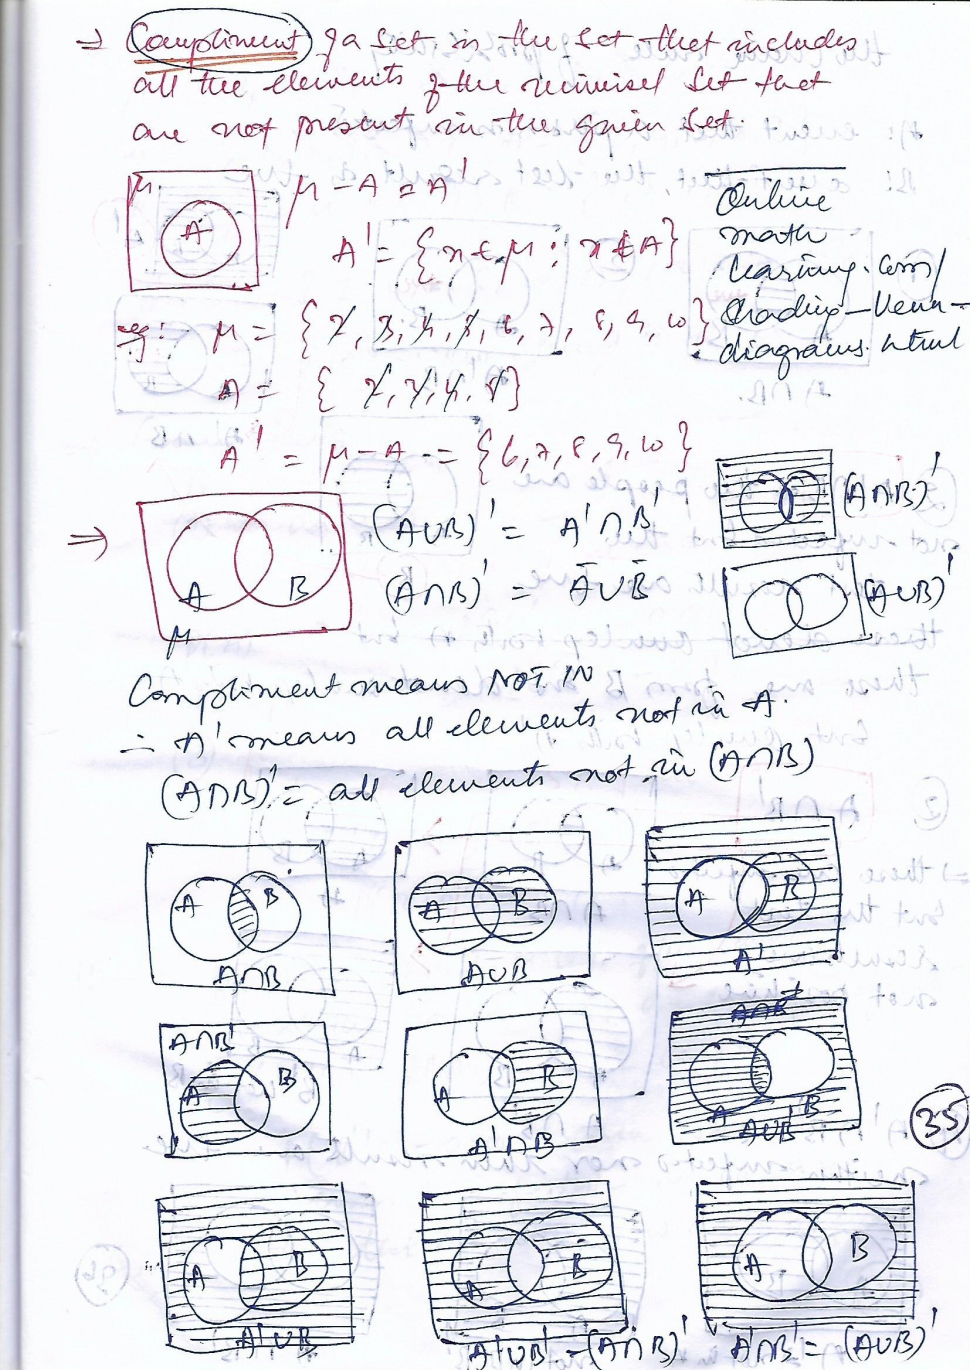 ⇒ Compliment of a Set is the set that includes
all the elements of the universel Set that
are not present in the given Set.
μ
A
μ - A = A'
A' = { x ∈ μ : x ∉ A}
Online
math
learning.com/
Shading-Venn-
diagrams.html
eg: μ = { 2, 3, 4, 5, 6, 7, 8, 9, 10 }
A = { 2, 3, 4, 5 }
A' = μ - A = { 6, 7, 8, 9, 10 }
⇒
A B
μ
(A∪B)' = A'∩B'
(A∩B)' = Ā∪B̄
(A∩B)'
(A∪B)'
Compliment means NOT IN
∴ A' means all elements not in A.
(A∩B)' = all elements not in (A∩B)
A B
A∩B
A B
A∪B
A B
A'
A∩B'
A B
A B
A'∩B
A B
A∪B'
35
A B
A'∪B
A B
A'∪B' = (A∩B)'
A B
A'∩B' = (A∪B)'